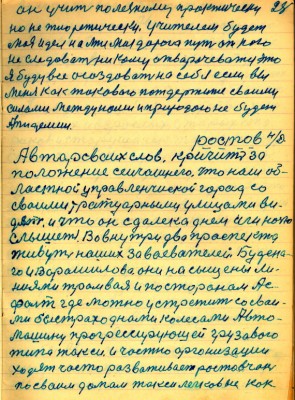 он учит полезному практически 28
но не теоретически. Учителем будет
моя идея на
не следовать никому отворачевать это
Я буду все создавать на себя если вы
меня как такового потдержите своими
силами между нами и природою не будет
Эпидемии.
Ростов н/д
Автор своих слов, кричит за
положение сегоашнего, это наш об-
ластной управленческой город со
своими тратуарными улицами ви-
дят, и что он сделека днем или ночью
слышет. Вовнутри два проспекта
живут, наших Завоевателей Будена-
го и Ворошилова они насыщены ли-
ниями трамвая и посторонам Ас-
фальт где можно устретит со сваи-
ми быстраходнами колесами Авто-
машину прогрессирующей грузавого
типа такси и частно организации
ходят часто развативает ростовчан
по своим домам такси легковые как